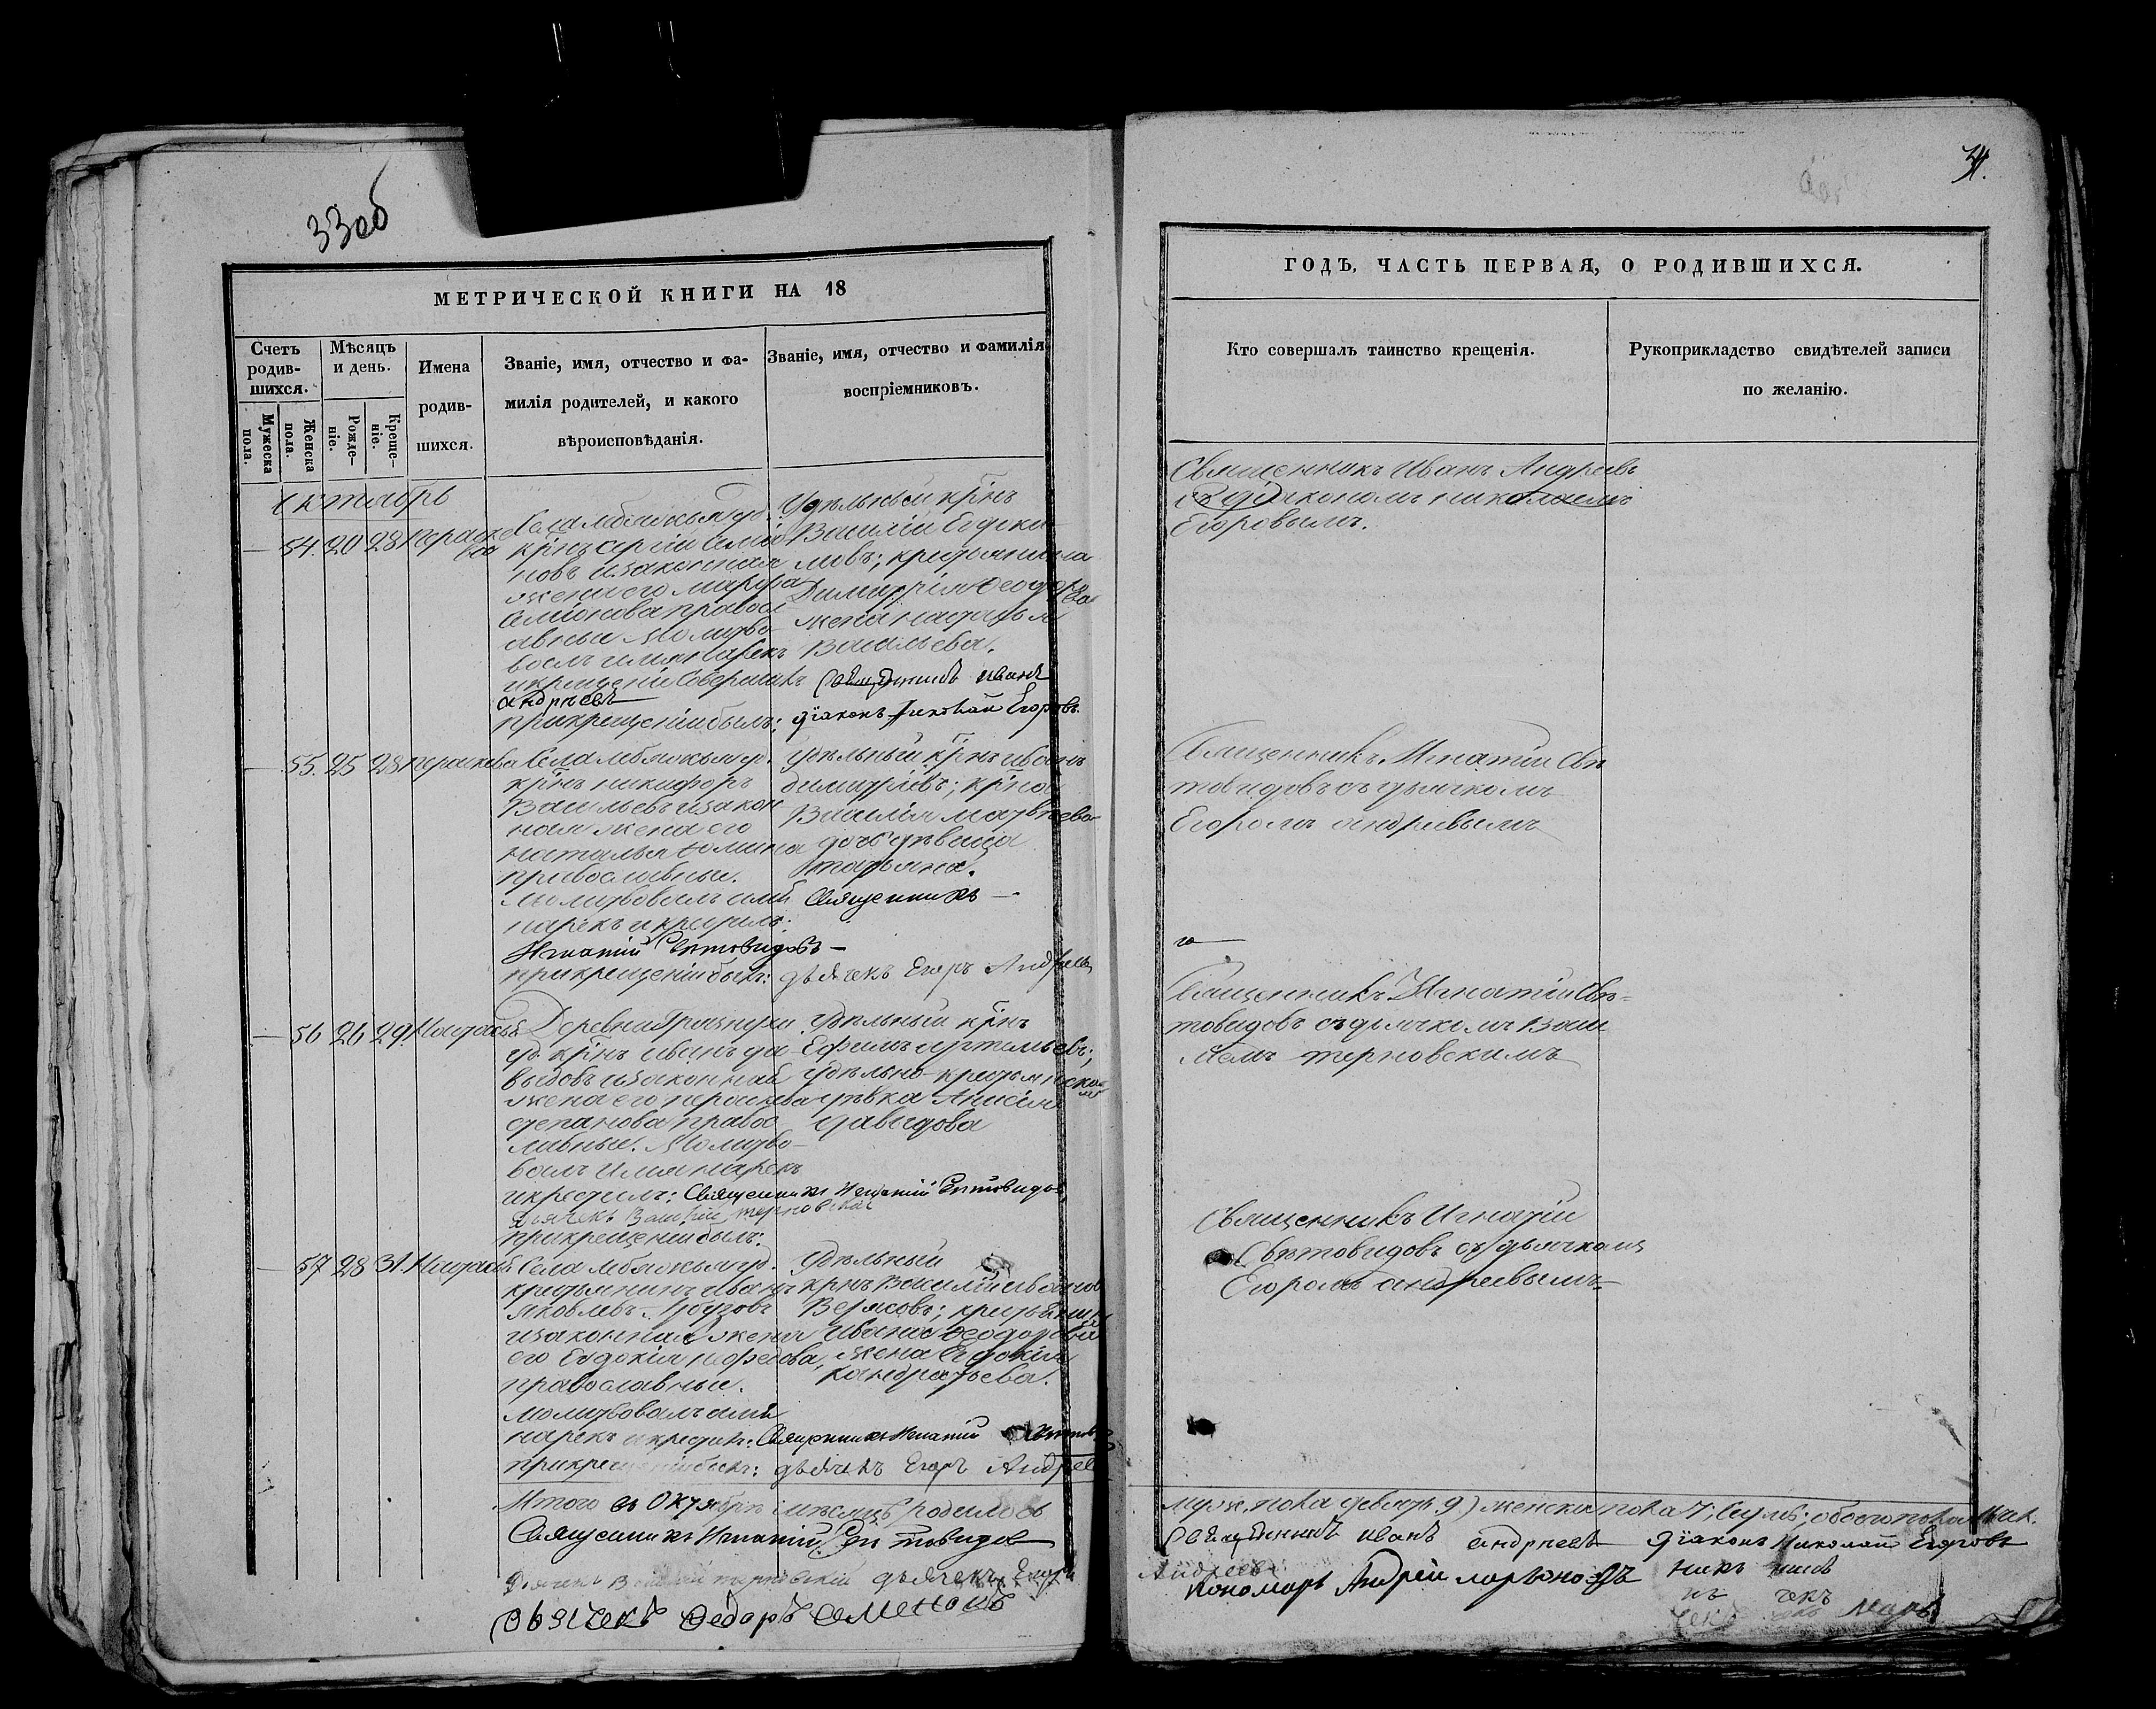 33об
34.
МЕТРИЧЕСКОЙ КНИГИ НА 18
Счетъ родив-шихся.
Мужеска пола.
Женска пола.
Мѣсяцъ и день.
Рожде-ніе.
Креще-ніе.
Имена родив-шихся.
Званіе, имя, отчество и фа-
милія родителей, и какого
вѣроисповѣданія.
Званіе, имя, отчество и фамилія
воспріемниковъ.
октябрь
54. 20 28 Параске
ва
Села уд.
крнъ Сергій Симіо
новъ изаконная
жена его Марфа
Симіонова правосл
авные Молитво
валъ имя нарекъ
икрещеніе Совершилъ Священникъ Иванъ
Андрѣевъ
прикрещеніи былъ: діаконъ Николай Егоровъ
Удѣльный крнъ
Василій
мовъ; крестьянина
Димитрія Феодоро
ва
жена Наталья
Васильева.
55. 25 28 Параскева
Села уд.
крнъ Никифоръ
Васильевъ изакон
ная жена его
Наталья Фомина
православные.
Молитвовалъ имя
нарекъ икрестилъ:
Священникъ
Игнатій Свѣтовидовъ
прикрещеніи былъ: дьячекъ Егоръ Андреевъ
Удѣльный крнъ Иванъ
Димитріевъ; крнна
Василія Матвѣева
дочь дѣвица
Татьяна.
56 26 29. Настасья
Деревни
уд. крнъ Иванъ Да
выдовъ изаконная
жена его Параскева
Степанова правос
лавные. Молитво
валъ Имя нарекъ
икрестилъ: Священникъ Игнатій Свѣтовидовъ,
дьячекъ Василій Терновскій
прикрещеніи былъ:
Удѣльный крнъ
Ефимъ Артемьевъ;
Удѣльно-крестьянская
дѣвка Анисія
Давыдова
57 28 31. Настасья
Села уд.
крестьянинъ Иванъ
Яковлевъ
изаконная жена
его Евдокія Нефедова,
православные.
Молитвовалъ имя
нарекъ икрестилъ: Священникъ Игнатій Свѣтов
прикрещеніи былъ: дьячекъ Егоръ Андреев
Удѣльный
крнъ Василій Иванов
крестьянина
Ивана Феодорова
жена Евдокія
Кондратьева.
Итого въ Октябрѣ мѣсяцѣ родилось
Священникъ Игнатій Свѣтовидовъ
Дьячекъ Василій Терновскій дьячекъ Егоръ
дьячекъ Федоръ Семеновъ
ГОДЪ, ЧАСТЬ ПЕРВАЯ, О РОДИВШИХСЯ.
Кто совершалъ таинство крещенія.
Рукоприкладство свидѣтелей записи
по желанію.
Священникъ Иванъ Андреевъ
съ діакономъ Николаемъ
Егоровымъ.
Священникъ Игнатій Свѣ
товидовъ съ дьячкомъ
Егоромъ Андреевымъ
го
Священникъ Игнатій Свѣ=
товидовъ съ дьячкомъ Васи
ліемъ Терновскимъ
Священникъ Игнатій
Свѣтовидовъ съ дьячкомъ
Егоромъ Андреевымъ
муж. пола девять 9) женска пола 7; Седмь; обоего пола
Священникъ Иванъ Андреевъ Діаконъ Николай Егоровъ
Андреевъ:
пономарь Андрей Ларіоновъ